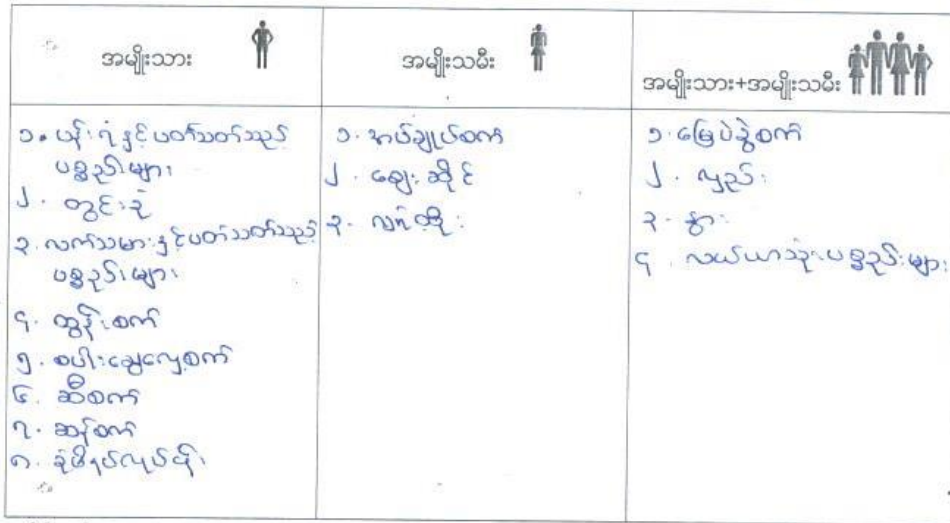 အမျိုးသား
အမျိုးသမီး
အမျိုးသား+အမျိုးသမီး
၁. ပန်းရံနှင့်ပတ်သတ်သည့်
ပစ္စည်းများ
၂. တွင်းတုံး
၃. လက်သမားနှင့်ပတ်သတ်သည့်
ပစ္စည်းများ
၄. ထွန်စက်
၅. စပါးချွေလှေ့စက်
၆. ဆီစက်
၇. ဆန်စက်
၈.
၁. အပ်ချုပ်စက်
၂. ဈေးဆိုင်
၃. လက်ထိုး
၁. မြေပဲခွဲစက်
၂. လှည်း
၃. နွား
၄. လယ်ယာသုံးပစ္စည်းများ